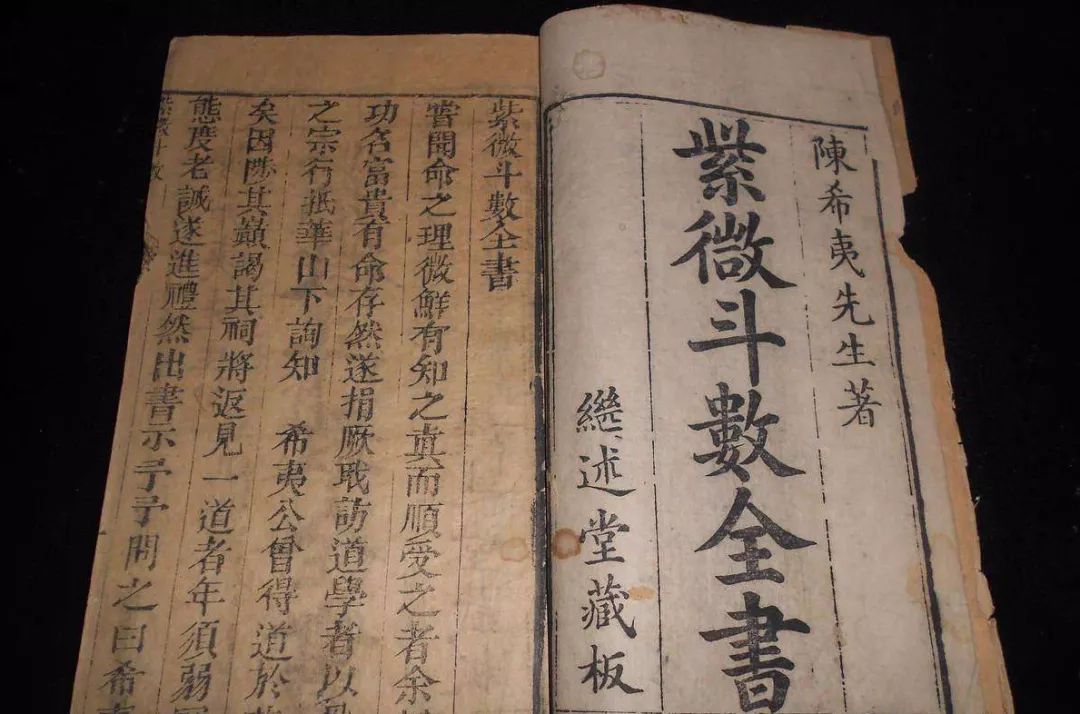 陳希夷先生著
紫微斗數全書
繼述堂藏板
紫微斗數全書
嘗聞命之理微鮮有知之真而順受之者余
功名富貴有命存然遂捐厥職訪道學者以
之宗行抵華山下詢知 希夷公曾得道於
矣因陟其巔謁其祠將返見一道者年須弱
態度老誠遂進禮然出書示予予問之曰希
紫微斗數